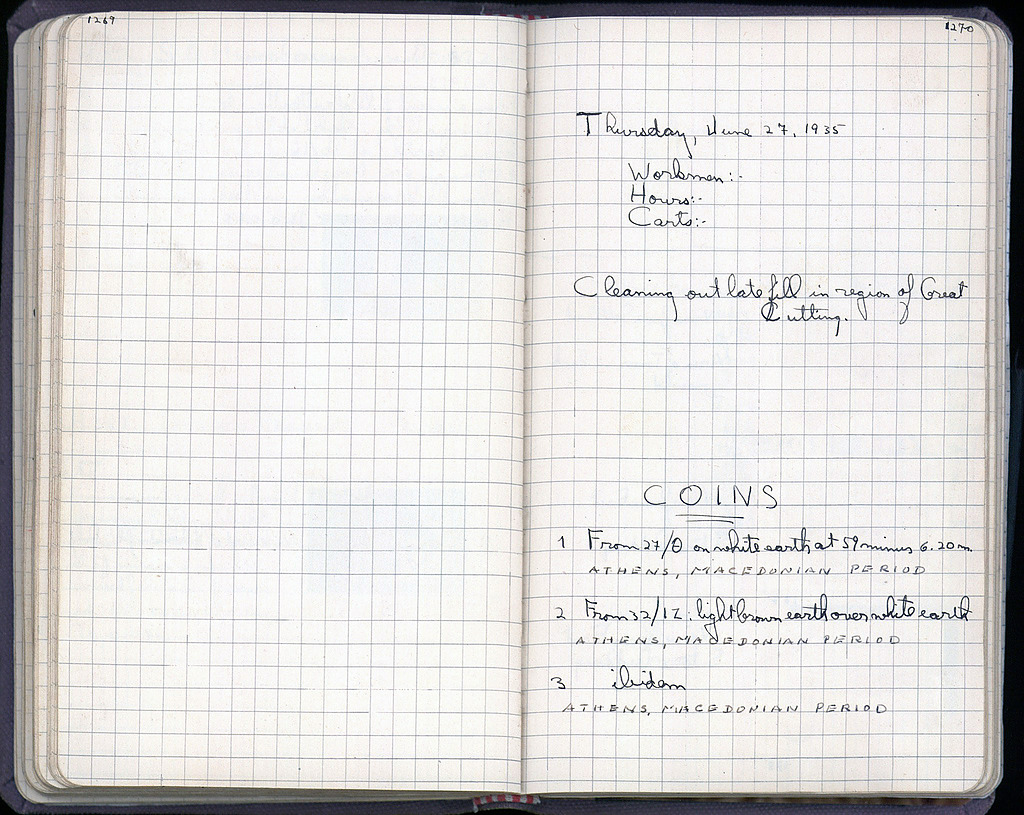 1269
1270
Thursday, June 27, 1935
Workmen:-
Hours:-
Carts:-
Cleaning out late fill in region of Great
Cutting.
COINS
1 From 27/Θ on white earth at 59 minus 6.20 m.
ATHENS, MACEDONIAN PERIOD
2 From 32/ : light brown earth over white earth
ATHENS, MACEDONIAN PERIOD
3 ibidem
ATHENS, MACEDONIAN PERIOD